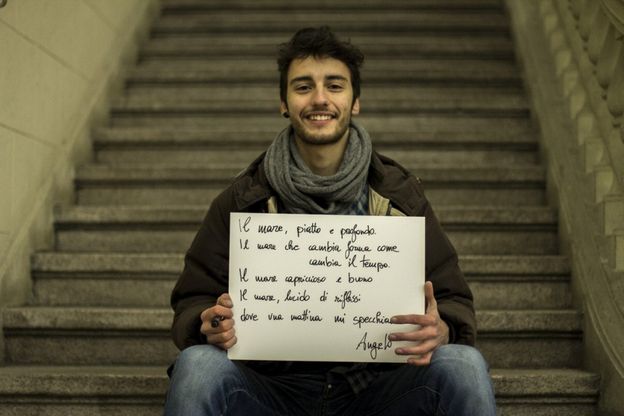 Il mare, piatto e profondo.
Il mare che cambia forma come
cambia il tempo.
Il mare capriccioso e buono
Il mare, lucido di riflessi
dove una mattina mi specchiai
Angelo